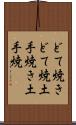 どて焼き
どて焼土
手焼き土
手焼